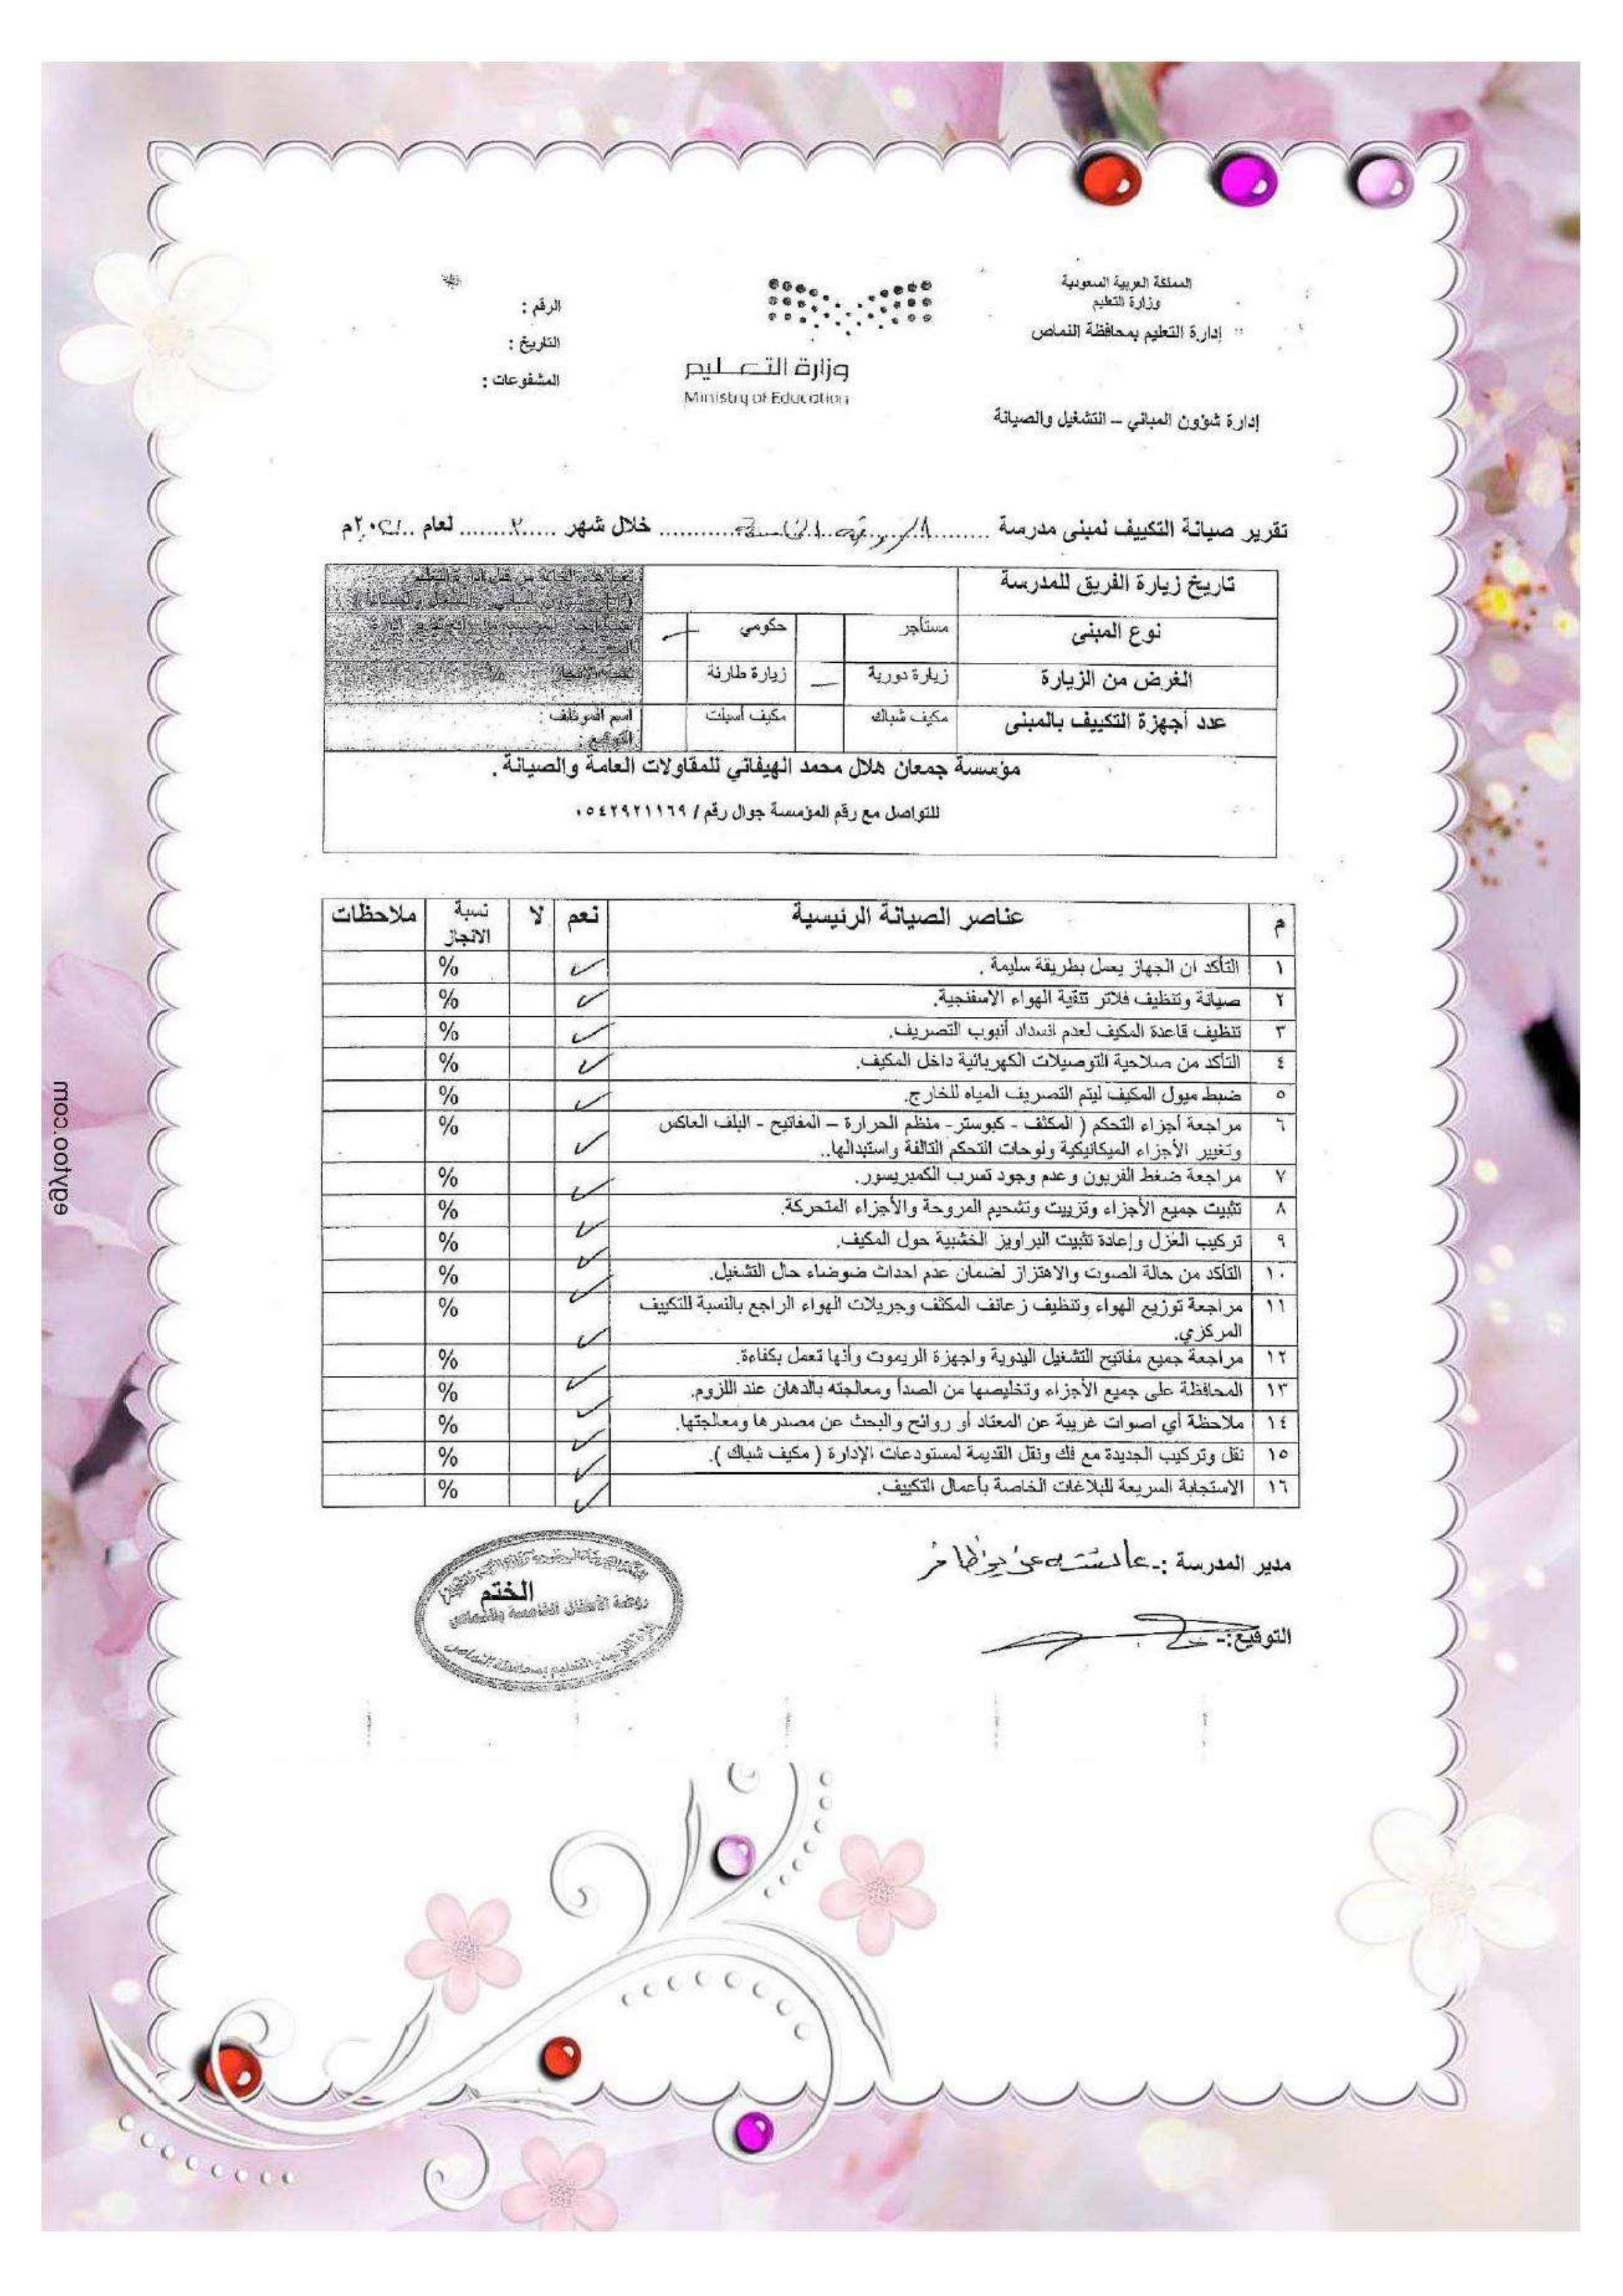 المملكة العربية السعودية
وزارة التعليم
إدارة التعليم بمحافظة النماص
إدارة شؤون المباني – التشغيل والصيانة
وزارة التعليم
Ministry of Education
الرقم :
التاريخ :
المشفوعات :
تقرير صيانة التكييف لمبنى مدرسة .......... خلال شهر ....٢.... لعام ..٢٠٢١م
تاريخ زيارة الفريق للمدرسة
نوع المبنى مستأجر حكومي
الغرض من الزيارة زيارة دورية زيارة طارئة
عدد أجهزة التكييف بالمبنى مكيف شباك مكيف أسبلت
اسم الموظف :
التوقيع :
مؤسسة جمعان هلال محمد الهيفاني للمقاولات العامة والصيانة .
للتواصل مع رقم المؤسسة جوال رقم / ٠٥٤٢٩٢١١٦٩
م عناصر الصيانة الرئيسية نعم لا نسبة الانجاز ملاحظات
١ التأكد ان الجهاز يعمل بطريقة سليمة . ✓ %
٢ صيانة وتنظيف فلاتر تنقية الهواء الاسفنجية. ✓ %
٣ تنظيف قاعدة المكيف لعدم انسداد أنبوب التصريف. ✓ %
٤ التأكد من صلاحية التوصيلات الكهربائية داخل المكيف. ✓ %
٥ ضبط ميول المكيف ليتم التصريف المياه للخارج. ✓ %
٦ مراجعة أجزاء التحكم ( المكثف - كبوستر- منظم الحرارة – المفاتيح - البلف العاكس %
وتغيير الأجزاء الميكانيكية ولوحات التحكم التالفة واستبدالها.. ✓
٧ مراجعة ضغط الفريون وعدم وجود تسرب الكمبريسور. ✓ %
٨ تثبيت جميع الأجزاء وتزييت وتشحيم المروحة والأجزاء المتحركة. ✓ %
٩ تركيب العزل وإعادة تثبيت البراويز الخشبية حول المكيف. ✓ %
١٠ التأكد من حالة الصوت والاهتزاز لضمان عدم احداث ضوضاء حال التشغيل. ✓ %
١١ مراجعة توزيع الهواء وتنظيف زعانف المكثف وجريلات الهواء الراجع بالنسبة للتكييف %
المركزي. ✓
١٢ مراجعة جميع مفاتيح التشغيل اليدوية واجهزة الريموت وأنها تعمل بكفاءة. ✓ %
١٣ المحافظة على جميع الأجزاء وتخليصها من الصدأ ومعالجته بالدهان عند اللزوم. ✓ %
١٤ ملاحظة أي اصوات غريبة عن المعتاد أو روائح والبحث عن مصدرها ومعالجتها. ✓ %
١٥ نقل وتركيب الجديدة مع فك ونقل القديمة لمستودعات الإدارة ( مكيف شباك ). ✓ %
١٦ الاستجابة السريعة للبلاغات الخاصة بأعمال التكييف. ✓ %
مدير المدرسة :-
التوقيع:-
الختم
روضة الأطفال الخامسة بالنماص
egytoo.com